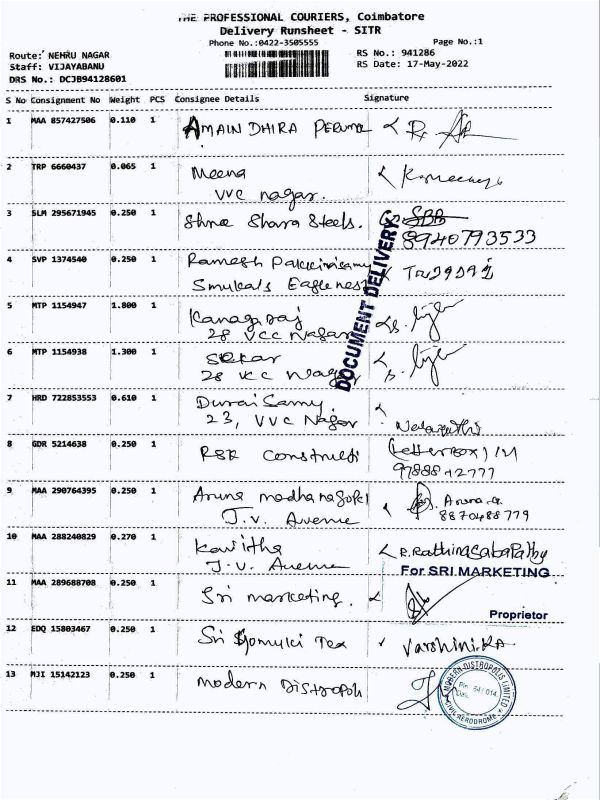 THE PROFESSIONAL COURIERS, Coimbatore
Delivery Runsheet - SITR
Phone No.:0422-3505555
Page No.:1
Route: NEHRU NAGAR
RS No.: 941286
Staff: VIJAYABANU
RS Date: 17-May-2022
DRS No.: DCJB94128601
S No Consignment No Weight PCS Consignee Details Signature
1 MAA 857427506 0.110 1 AMAIN DHIRA PERUMA
2 TRP 6660437 0.065 1 Meena
VVC nagar.
3 SLM 295671945 0.250 1 Shree Shara Steels. SBB
8940793533
4 SVP 1374540 0.250 1 Ramesh
Eagle nest
DOCUMENT DELIVERY
5 MTP 1154947 1.800 1 Kanagaraj
28 VCC Nagar
6 MTP 1154938 1.300 1 Sekar
28 Nagar
7 HRD 722853553 0.610 1 Durai Samy
23, VVC Nagar
8 GDR 5214638 0.250 1 (Letter Box)
9788812777
9 MAA 290764395 0.250 1 Aruna
J.V. Avenue 8870488779
10 MAA 288240829 0.270 1 Kavitha R. Rathinasabapathy
J.V. Avenue
For SRI MARKETING
11 MAA 289688708 0.250 1 Sri marketing.
Proprietor
12 EDQ 15803467 0.250 1 Sri Gomuki Tex Varshini.RA
13 MJI 15142123 0.250 1 modern Distropoli
MODERN DISTROPOLIS LIMITED
Pin 641 014
CIVIL AERODROME